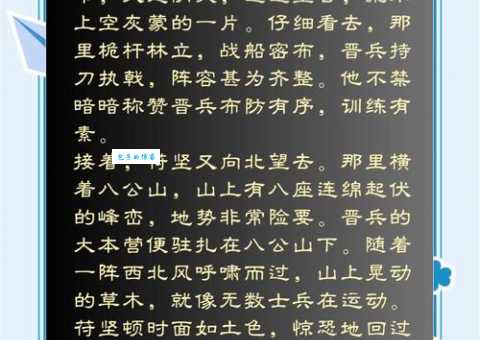 上空灰蒙的一片。仔细看去，那
里桅杆林立，战船密布，晋兵持
刀执戟，阵容甚为齐整。他不禁
暗暗称赞晋兵布防有序，训练有
素。
接着，苻坚又向北望去。那里横
着八公山，山上有八座连绵起伏
的峰峦，地势非常险要。晋兵的
大本营便驻扎在八公山下。随着
一阵西北风呼啸而过，山上晃动
的草木，就像无数士兵在运动。
苻坚顿时面如土色，惊恐地回过